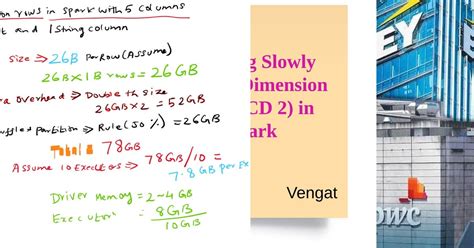 on rows in spark with 5 columns
t and 1 String column
Size => 26B per Row (Assume)
26B x 1B rows = 26GB
a overhead => Double the size
26GB x 2 = 52GB
uffled Partition => Rule (50%) = 26GB
Total 78GB
Assume 10 Executors => 78GB/10 =
7.8GB per Exe
Driver memory = 2-4GB
Executor = 8GB
10GB
g Slowly
Dimension
CD 2) in
ark
Vengat
EY
pwc